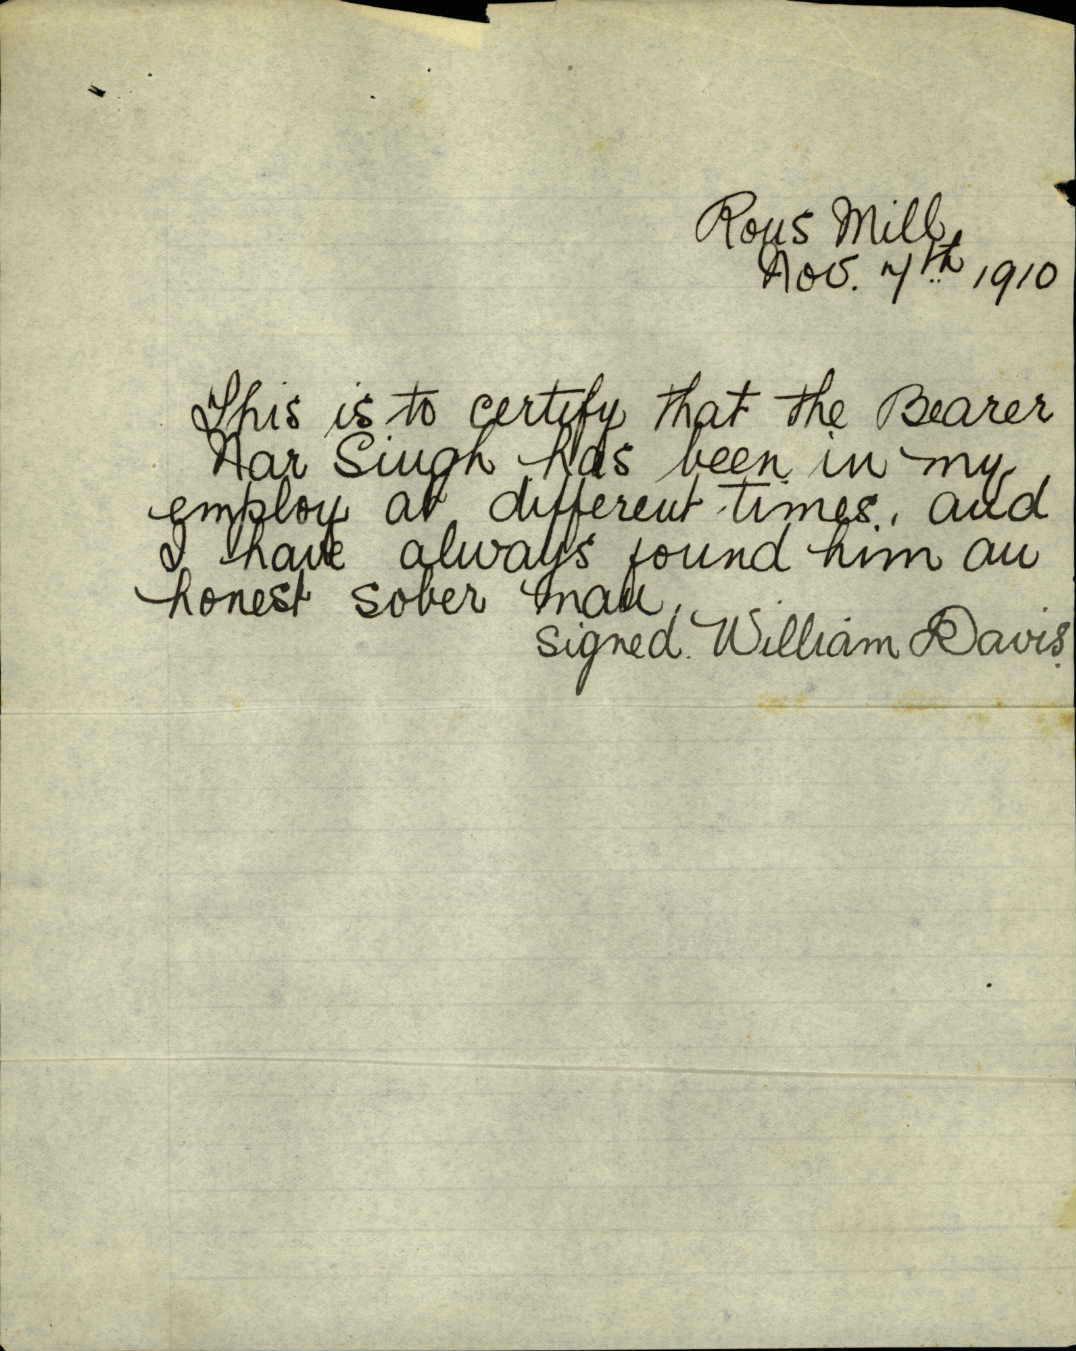 Rous Mill
Nov. 7th 1910
This is to certify that the Bearer
Nar Singh has been in my
employ at different times, and
I have always found him an
honest sober man.
signed. William Davis.